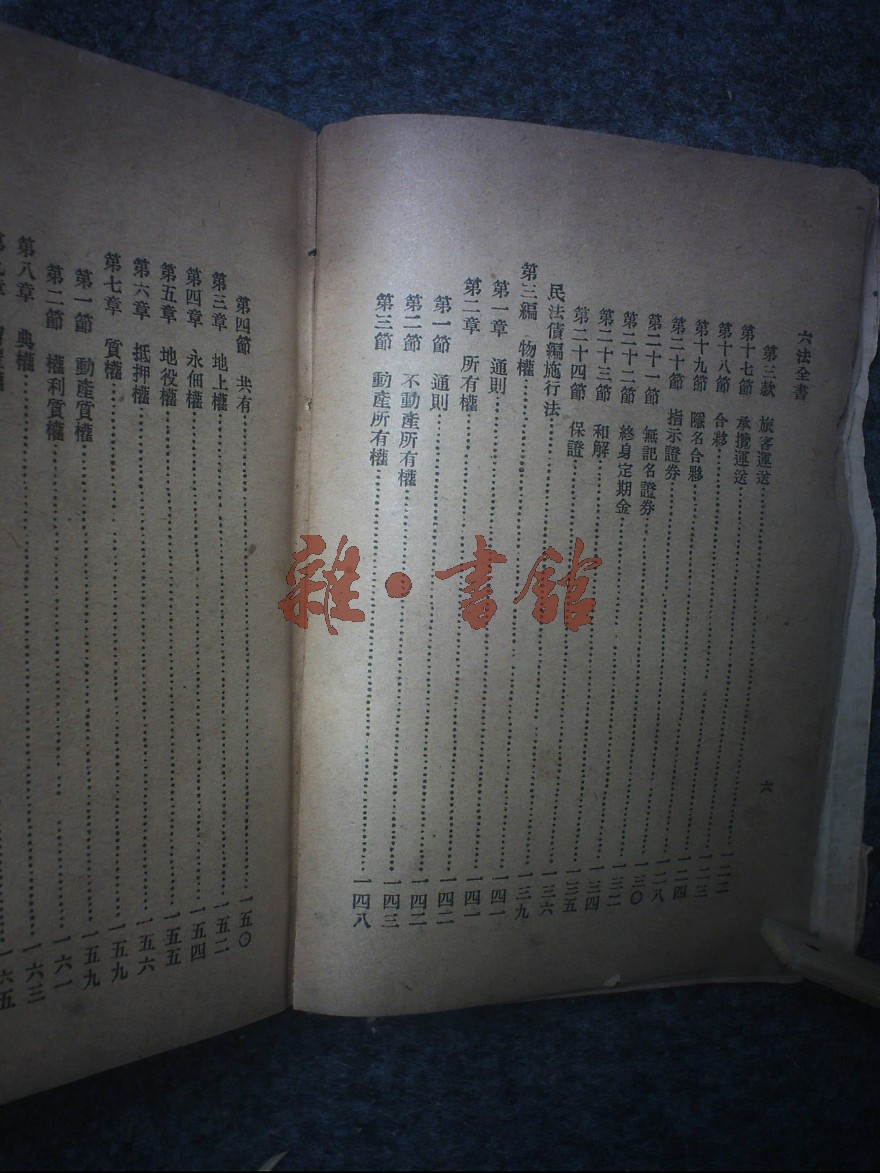 六法全書
六
第三款 旅客運送 一二二
第十七節 承攬運送 一二三
第十八節 合夥 一二四
第十九節 隱名合夥 一二八
第二十節 指示證券 一三〇
第二十一節 無記名證券 一三二
第二十二節 終身定期金 一三四
第二十三節 和解 一三五
第二十四節 保證 一三六
民法債編施行法
第三編 物權 一三九
第一章 通則 一四一
第二章 所有權 一四一
第一節 通則 一四二
第二節 不動產所有權 一四三
第三節 動產所有權 一四八
第四節 共有 一五〇
第三章 地上權 一五二
第四章 永佃權 一五四
第五章 地役權 一五五
第六章 抵押權 一五六
第七章 質權 一五九
第一節 動產質權 一五九
第二節 權利質權 一六一
第八章 典權 一六三
一六五
雜·書館